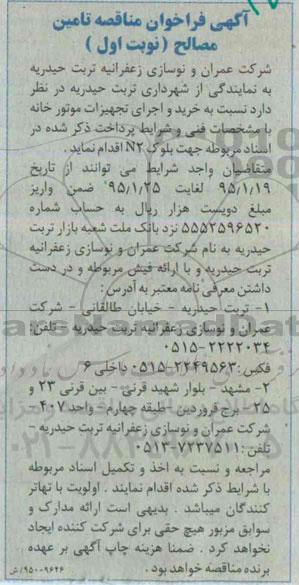 آگهی فراخوان مناقصه تامین
مصالح ( نوبت اول )
شرکت عمران و نوسازی زعفرانیه تربت حیدریه
به نمایندگی از شهرداری تربت حیدریه در نظر
دارد نسبت به خرید و اجرای تجهیزات موتور خانه
با مشخصات فنی و شرایط پرداخت ذکر شده در
اسناد مربوطه جهت بلوک N۲ اقدام نماید .
متقاضیان واجد شرایط می توانند از تاریخ
۹۵/۱/۱۹ لغایت ۹۵/۱/۲۵ ضمن واریز
مبلغ دویست هزار ریال به حساب شماره
۵۵۵۲۵۹۶۵۲۰ نزد بانک ملت شعبه بازار تربت
حیدریه به نام شرکت عمران و نوسازی زعفرانیه
تربت حیدریه و با ارائه فیش مربوطه و در دست
داشتن معرفی نامه معتبر به آدرس :
۱- تربت حیدریه - خیابان طالقانی - شرکت
عمران و نوسازی زعفرانیه تربت حیدریه - تلفن:
۰۵۱۵-۲۲۲۲۰۳۴
فکس: ۲۲۴۹۵۶۳-۰۵۱۵ داخلی ۶
۲- مشهد - بلوار شهید قرنی - بین قرنی ۲۳ و
۲۵- برج فروردین - طبقه چهارم- واحد ۴۰۷
شرکت عمران و نوسازی زعفرانیه تربت حیدریه -
تلفن: ۷۲۳۷۵۱۱-۰۵۱۳
مراجعه و نسبت به اخذ و تکمیل اسناد مربوطه
با شرایط ذکر شده اقدام نمایند . اولویت با تهاتر
کنندگان میباشد . بدیهی است ارائه مدارک و
سوابق مزبور هیچ حقی برای شرکت کننده ایجاد
نخواهد کرد . ضمنا هزینه چاپ آگهی بر عهده
برنده مناقصه خواهد بود .
۹۵۰۰۹۶۲۶/ش